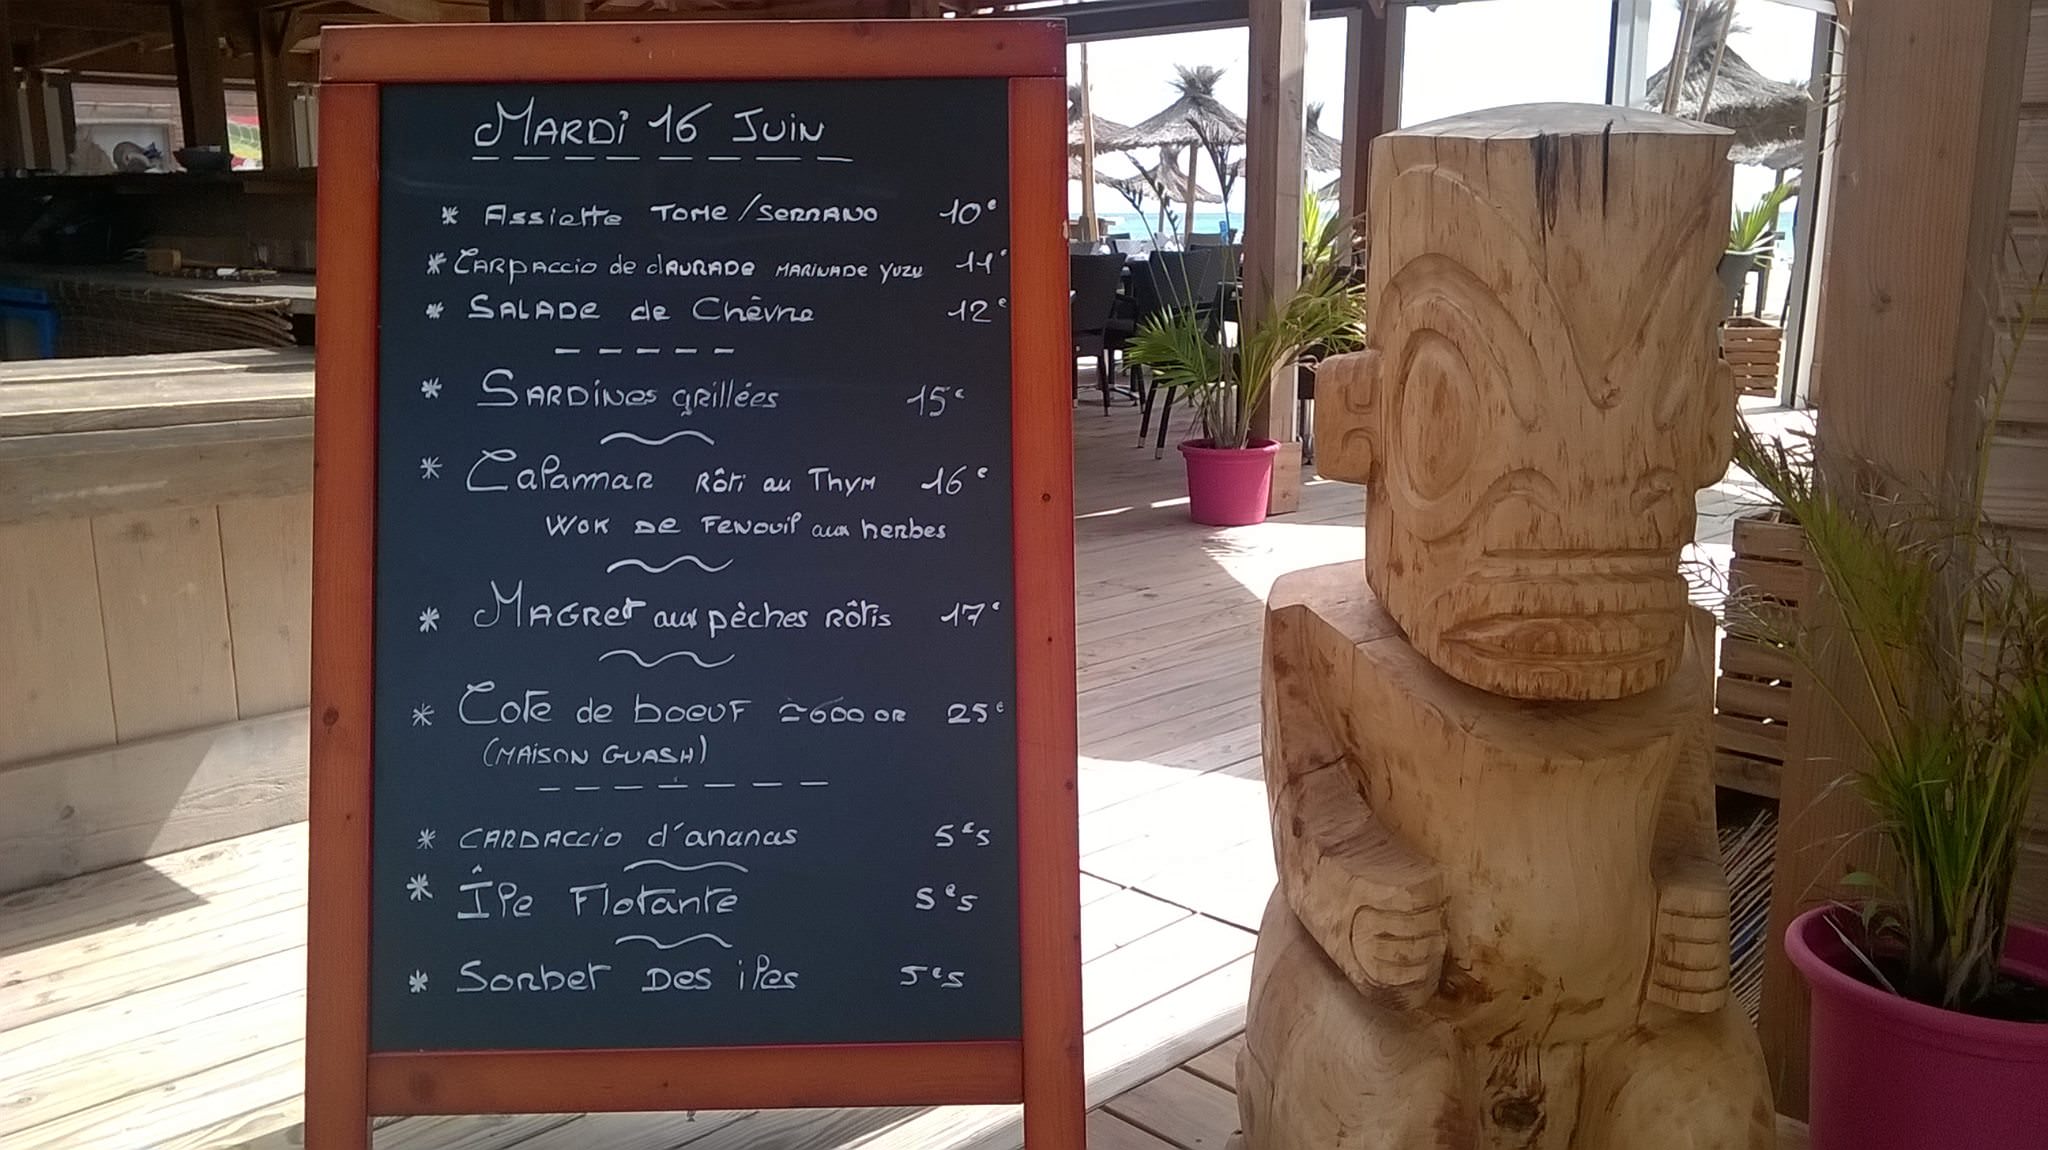 MARDi 16 Juin
* Assiette Tome/Serrano 10€
* Carpaccio de daurade marinade yuzu 11€
* Salade de Chèvre 12€
* Sardines grillées 15€
* Calamar Rôti au Thym 16€
Wok de Fenouil aux herbes
* Magret aux pèches Rôtis 17€
* Cote de boeuf ≃600 GR 25€
(Maison Guash)
* Cardaccio d'ananas 5€5
* Île Flotante 5€5
* Sorbet Des iles 5€5